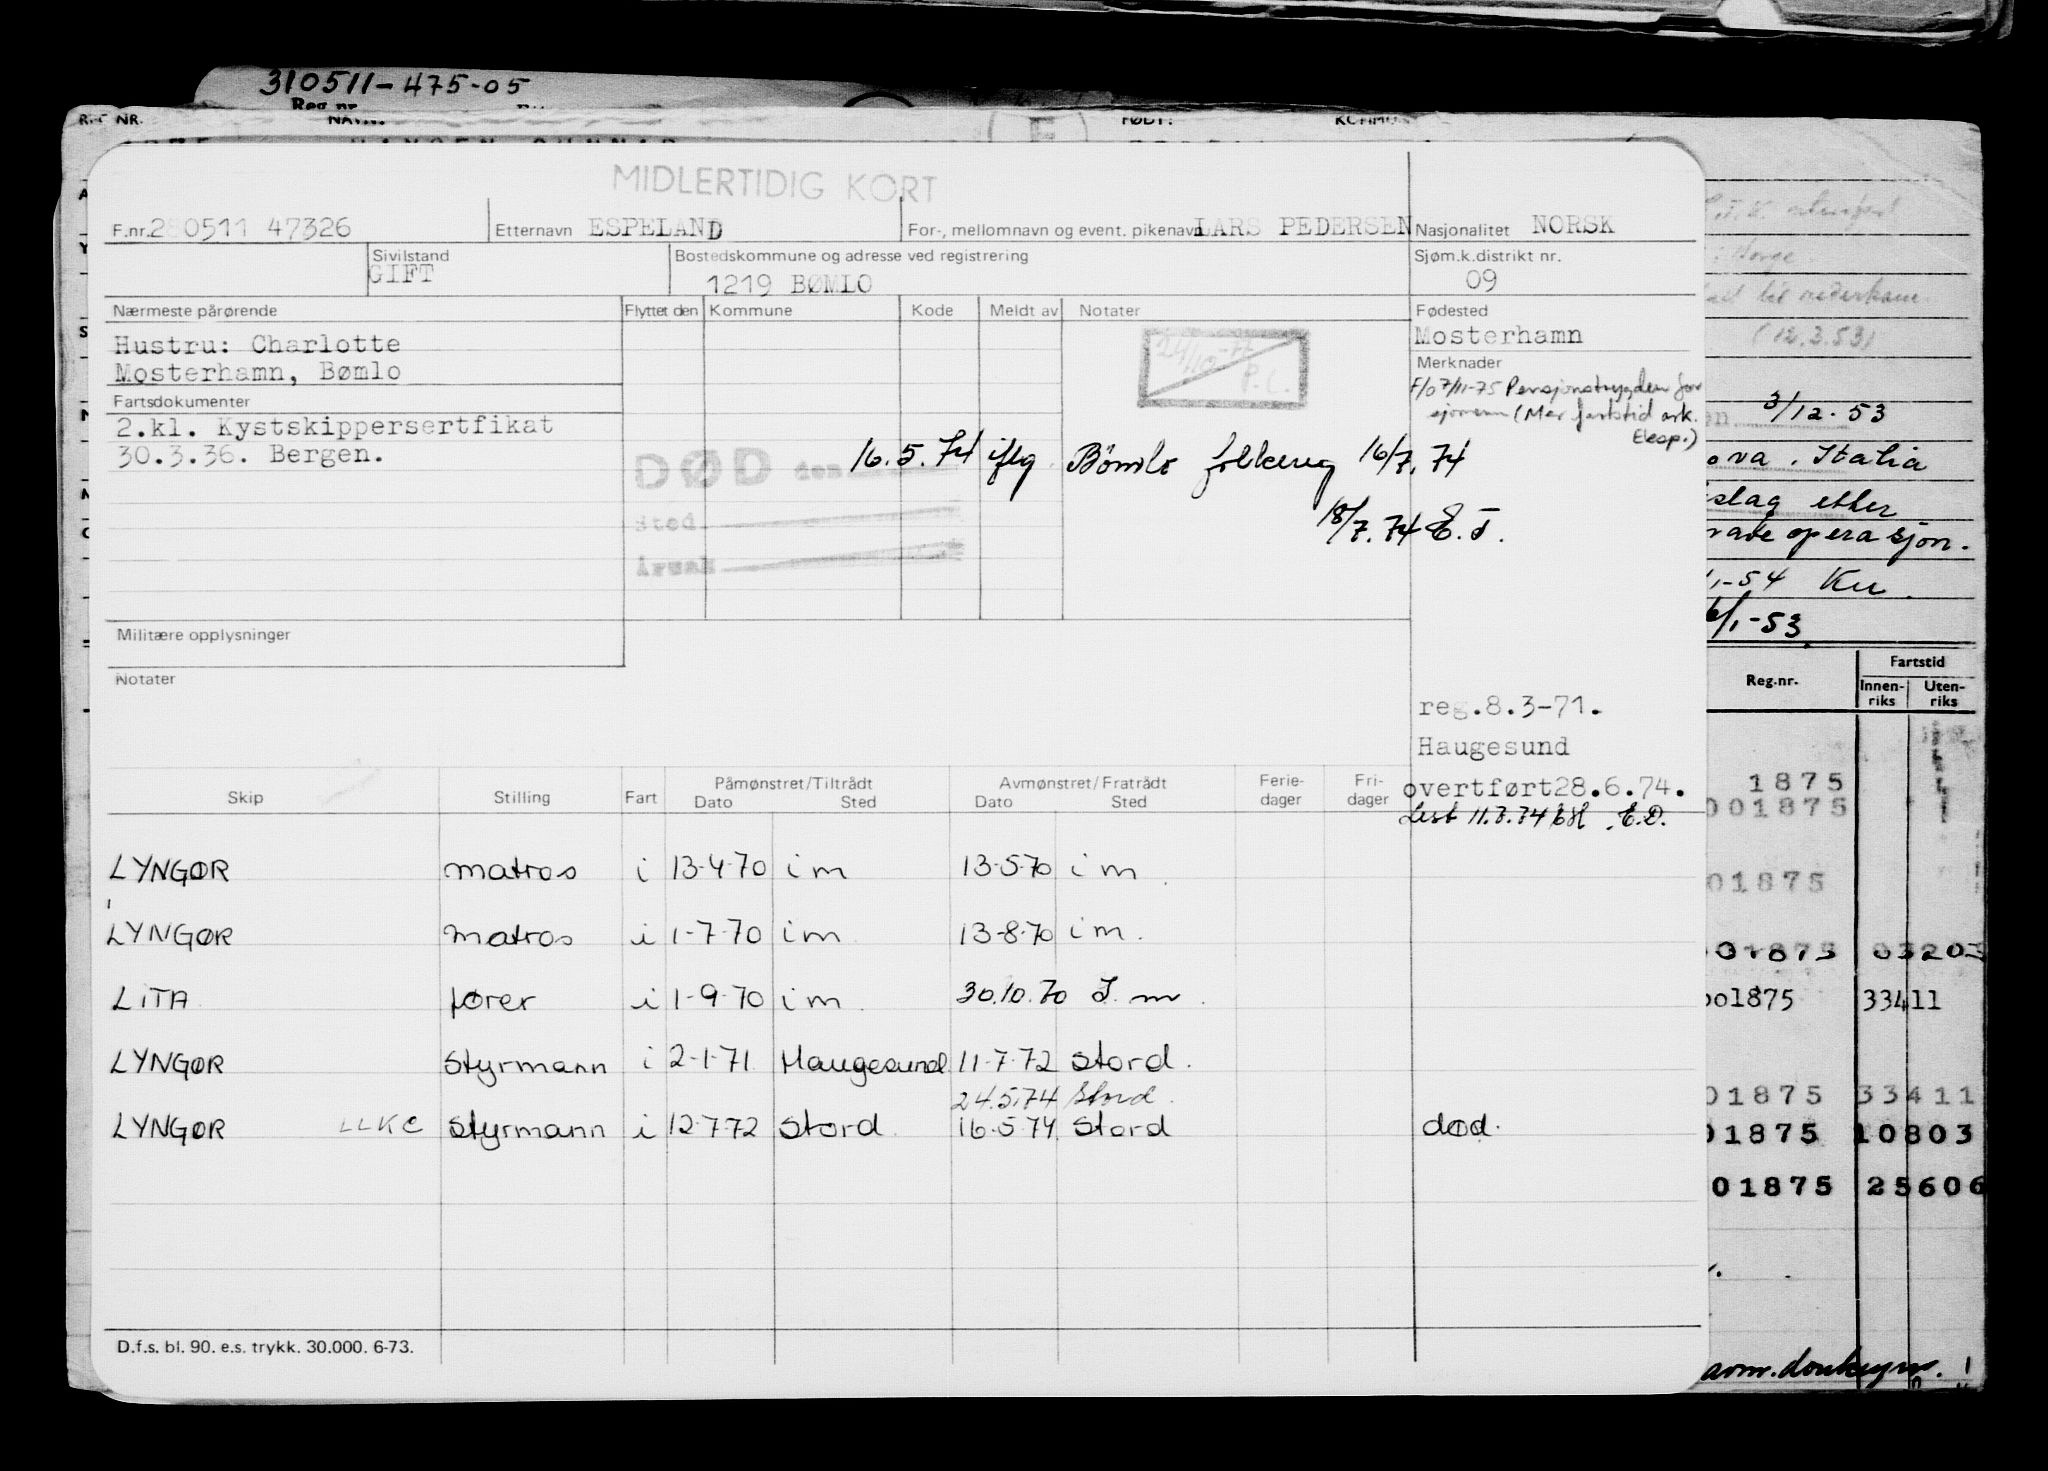 310511-475-05
Reg.nr.
NR. NAVN: FØDT:
MIDLERTIDIG KORT
F.nr. 280511 47326 Etternavn ESPELAND For-, mellomnavn og event. pikenavn LARS PEDERSEN Nasjonalitet NORSK
Sivilstand GIFT Bostedskommune og adresse ved registrering 1219 BØMLO Sjøm.k.distrikt nr. 09
Nærmeste pårørende Flyttet den Kommune Kode Meldt av Notater Fødested
Hustru: Charlotte Mosterhamn
Mosterhamn, Bømlo
24/10-77 P.L.
Merknader
F/O 7/11-75 Pensjonstrygden for
sjømenn (Mer fartstid ark.
Eksp.)
Fartsdokumenter
2.kl. Kystskippersertfikat
30.3.36. Bergen.
DØD den 16.5.74 iflg Bømlo folkereg 16/7.74
Sted
18/7.74 E.T.
Årsak
Militære opplysninger
Notater
reg.8.3-71.
Haugesund
overtført28.6.74.
Skip Stilling Fart Påmønstret/Tiltrådt Dato Sted Avmønstret/Fratrådt Dato Sted Ferie-dager Fri-dager
LYNGØR matros i 13-4-70 i m 13-5-70 i m.
LYNGØR matros i 1-7-70 i m 13-8-70 i m.
LITA fører i 1-9-70 i m 30.10.70 I. m.
LYNGØR Styrmann i 2-1-71. Haugesund 11-7-72 Stord.
24.5.74 Stord.
LYNGØR LLKC Styrmann i 12-7-72 Stord 16-5-74 Stord død.
D.f.s. bl. 90. e.s. trykk. 30.000. 6-73.
: Norge
(12.3.53)
3/12-53
Italia
etter
operasjon.
1-54
/1-53
Reg.nr. Fartstid
Innen-riks Uten-riks
1875
001875
01875
01875 03203
001875 33411
01875 33411
01875 10803
01875 25606